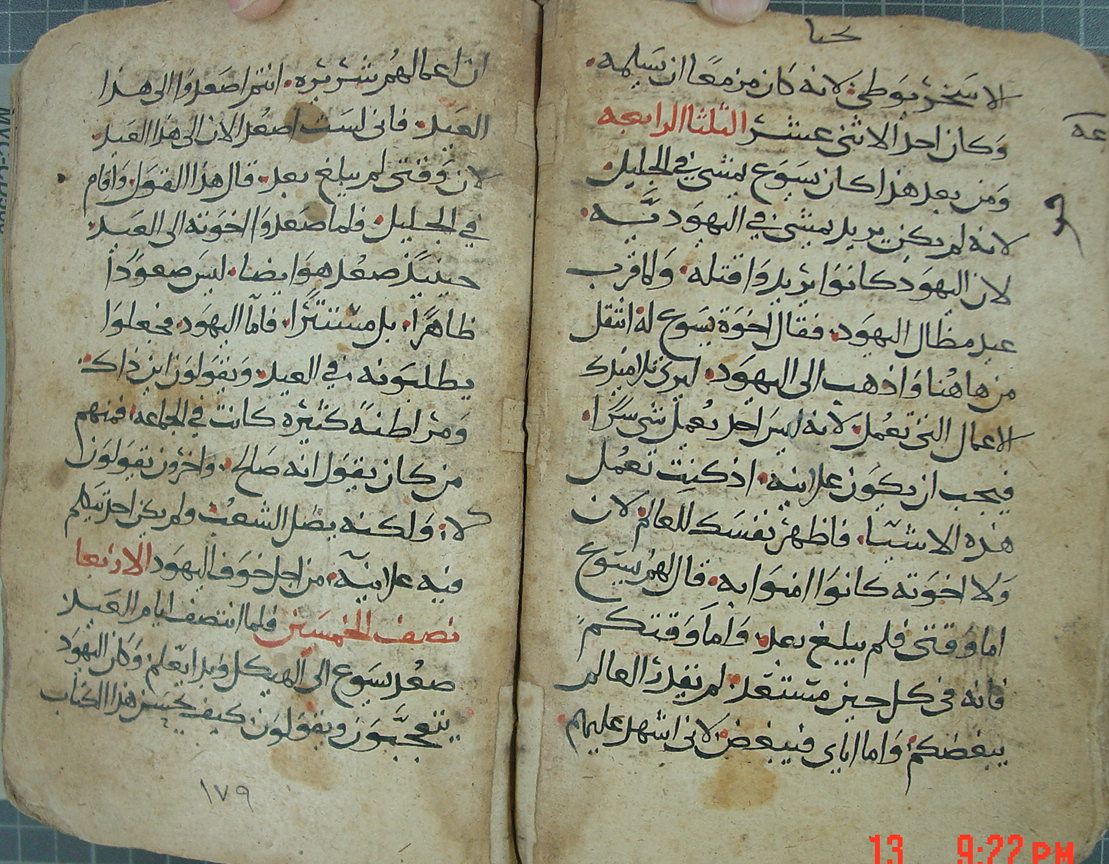 يحيا
الاسخريوطي لانه كان مزمعا ان يسلمه.
وكان احد الاثني عشر الثلثا الرابعه
عه
ومن بعد هذا كان يسوع يمشي في الجليل
لانه لم يكن يريد يمشي في اليهوديه.
لان اليهود كانوا يريدوا قتله. ولما قرب
عيد مظال اليهود. فقال اخوة يسوع له انتقل
من هاهنا واذهب الى اليهود. ليرى تلاميذك
الاعمال التي تعمل. لانه ليس احد يعمل شي سرا.
فيجب ان يكون علانيه. اذ كنت تعمل
هذه الاشيا. فاظهر نفسك للعالم. لان
ولا اخوته كانوا امنوا به. قال لهم يسوع
اما وقتي فلم يبلغ بعد. واما وقتكم
فانه في كل حين مستعد. لم يقدر العالم
يبغضكم واما اياي فيبغض. لاني اشهد عليهم
ان اعمالهم شريره. انتم اصعدوا الى هذا
العيد. فاني لست اصعد الان الى هذا العيد.
لان وقتي لم يبلغ بعد. قال هذا القول. واقام
في الجليل. فلما صعدوا اخوته الى العيد.
حينيذ صعد هو ايضا. ليس صعودا
ظاهرا. بل مستترا. فاما اليهود. فجعلوا
يطلبونه في العيد. ويقولون اين ذاك.
ومراطنة كثيره كانت في الجماعه. فمنهم
من كان يقول انه صالح. واخرون يقولون
كلا. ولكنه يضل الشعب. ولم يكن احد يتكلم
فيه علانيه. من اجل خوف اليهود الاربعا
نصف الخمسين فلما انتصف ايام العيد.
صعد يسوع الى الهيكل وبدا يعلم. وكان اليهود
يتعجبون ويقولون كيف يحسن هذا الكتاب
١٧٩
13 9:22 PM